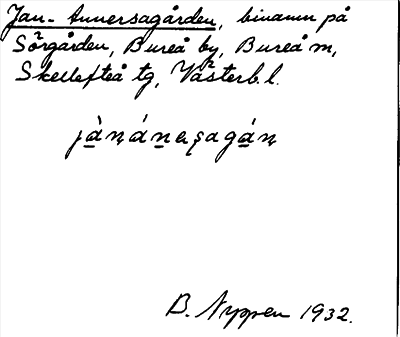 Jan-Annersagården, binamn på
Sörgården, Bureå by, Bureå m,
Skellefteå tg, Västerb. l.
jànánesagán
B. Nyppen 1932.